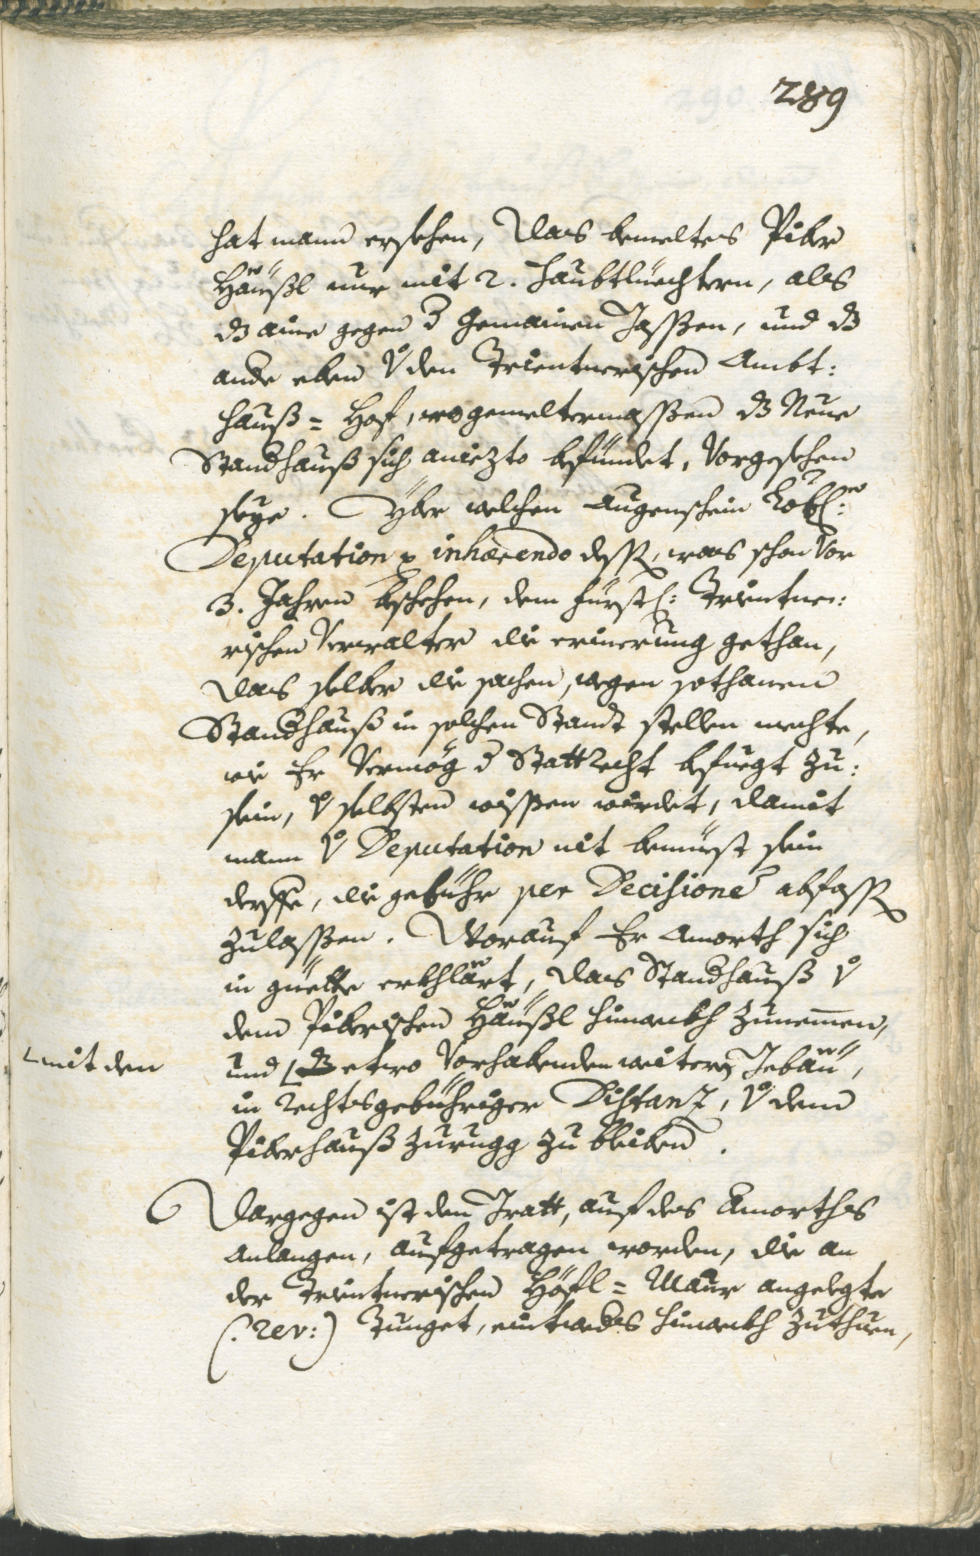 289
hat mann ersehen, Das bemeltes Piber
Häußl nur mit 2. haubtliechtern, als
dz aine gegen d Gemainen Gassen, und dz
ande eben v den Trientnerischen Ambt:
hauß= Hof, wo gemeltermassen dz Neue
Standhauß sich aniezto befündet, Vorgesehen
seÿe. Yber welchen augenschein Löbl:
Deputation p inhærendo dess, was schon vor
3. Jahren beschehen, dem fürstl: Trientne:
rischen Verwalter die erinerung gethan,
Das selber die sachen, wegen sothanen
Standhauß in solchen Standt stellen mechte,
wie Er Vermög d Stattrecht befuegt zu:
sein, v selbsten wissen würdet, damit
mann v Deputation nit bemüest sein
derffe, die gebühr per Decisione abfass
zulassen. Worauf Er Amorth sich
in güette erkhlärt, Das Standhauß v
dem Piberischen Häußl hinwekh zunemen,
mit den
und dz etwo Vorhabenden weitern Gebäu,
in rechtsgebühriger Distanz, v dem
Piberhauß zurugg zu bleiben.
Dargegen ist den Tratt, auf des Amorths
anlangen, aufgetragen worden, die an
der Trientnerischen Höfl= Maur angelegte
(: rev:) Tunget, eintweders hinwekh zuthuen,